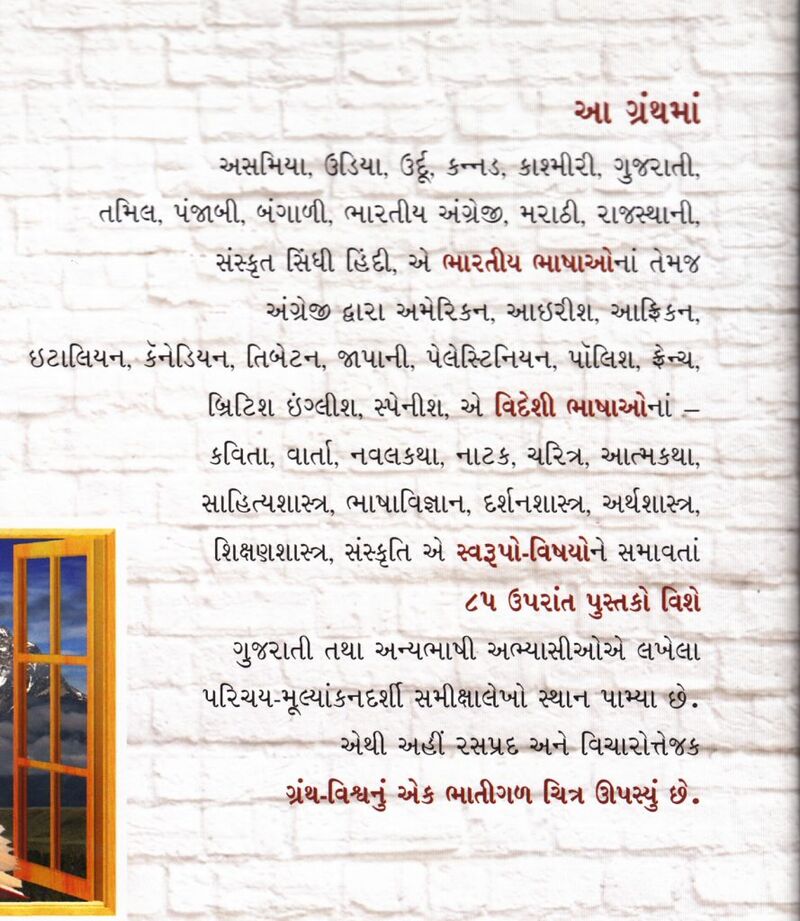 આ ગ્રંથમાં
અસમિયા, ઉડિયા, ઉર્દૂ, કન્નડ, કાશ્મીરી, ગુજરાતી,
તમિલ, પંજાબી, બંગાળી, ભારતીય અંગ્રેજી, મરાઠી, રાજસ્થાની,
સંસ્કૃત સિંધી હિંદી, એ ભારતીય ભાષાઓનાં તેમજ
અંગ્રેજી દ્વારા અમેરિકન, આઇરીશ, આફ્રિકન,
ઇટાલિયન, કૅનેડિયન, તિબેટન, જાપાની, પેલેસ્ટિનિયન, પૉલિશ, ફ્રેન્ચ,
બ્રિટિશ ઇંગ્લીશ, સ્પેનીશ, એ વિદેશી ભાષાઓનાં –
કવિતા, વાર્તા, નવલકથા, નાટક, ચરિત્ર, આત્મકથા,
સાહિત્યશાસ્ત્ર, ભાષાવિજ્ઞાન, દર્શનશાસ્ત્ર, અર્થશાસ્ત્ર,
શિક્ષણશાસ્ત્ર, સંસ્કૃતિ એ સ્વરૂપો-વિષયોને સમાવતાં
૮૫ ઉપરાંત પુસ્તકો વિશે
ગુજરાતી તથા અન્યભાષી અભ્યાસીઓએ લખેલા
પરિચય-મૂલ્યાંકનદર્શી સમીક્ષાલેખો સ્થાન પામ્યા છે.
એથી અહીં રસપ્રદ અને વિચારોત્તેજક
ગ્રંથ-વિશ્વનું એક ભાતીગળ ચિત્ર ઊપસ્યું છે.